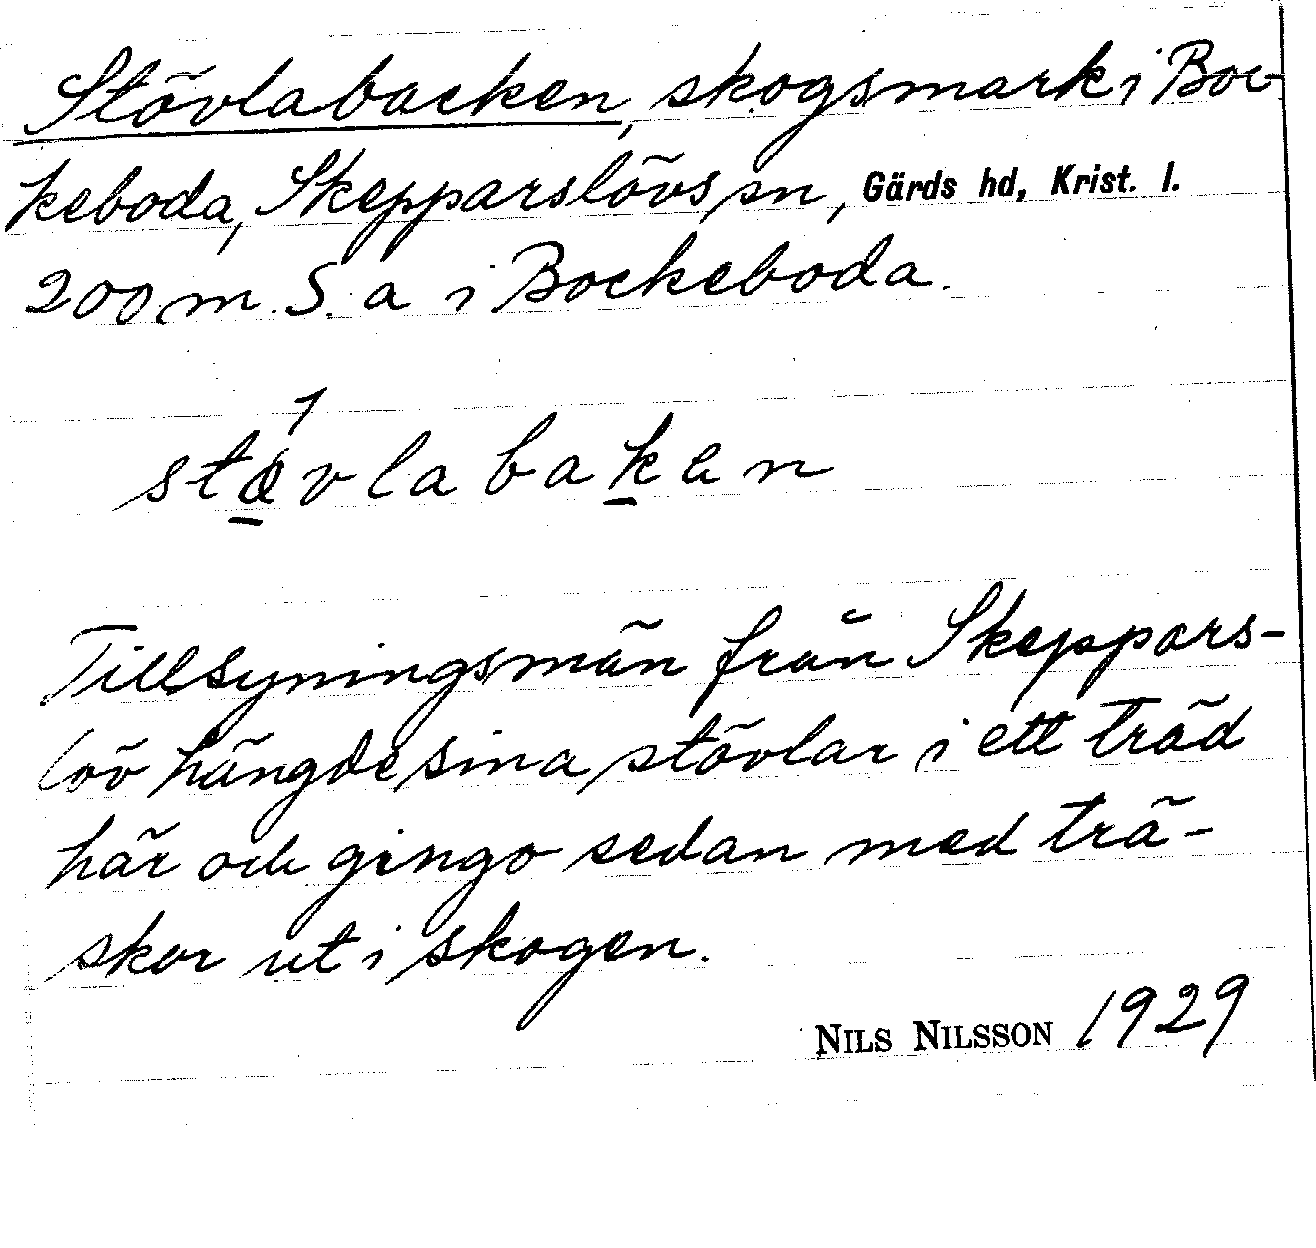 Stövlabacken, skogsmark i Boc-
keboda, Skepparslövs sn, Gärds hd, Krist. l.
200 m. S. a i Bockeboda.
stövlabaken
Tillsyningsmän från Skeppars-
löv hängde sina stövlar i ett träd
här och gingo sedan med trä-
skor ut i skogen.
NILS NILSSON 1929